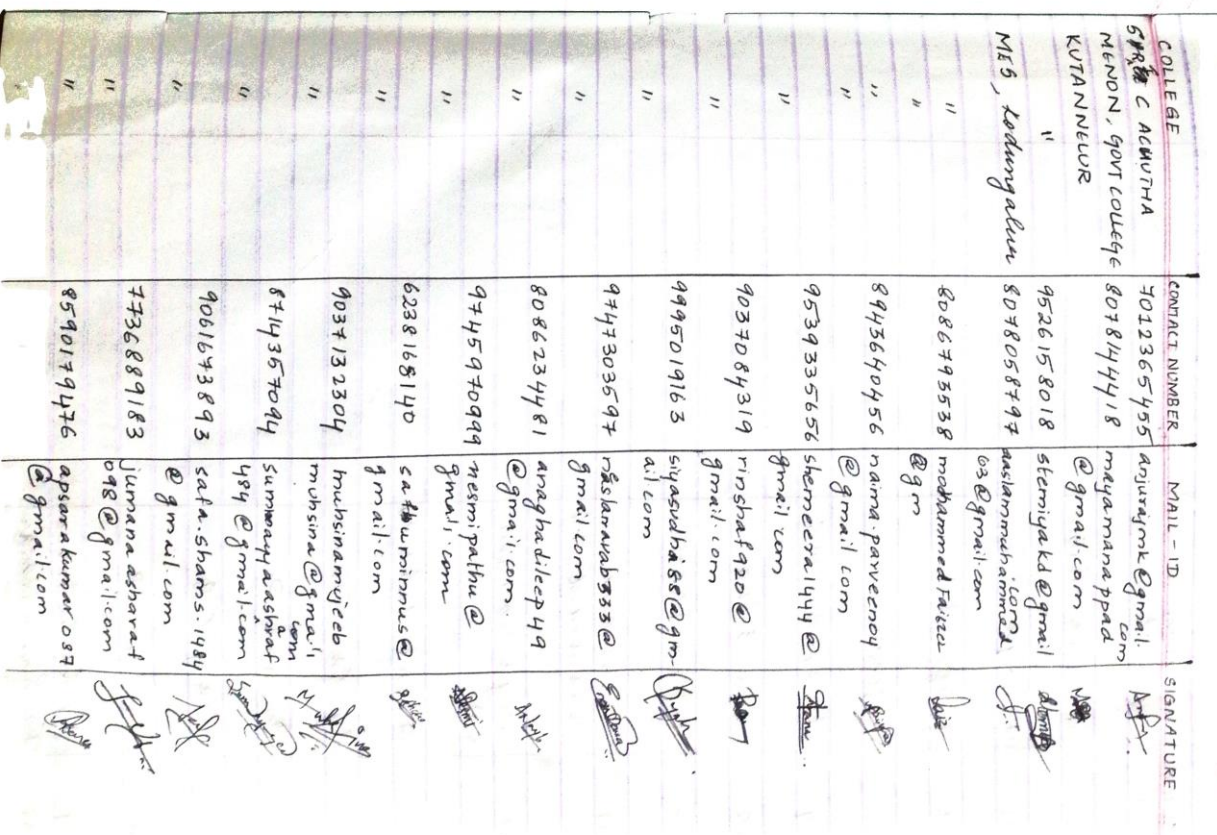 COLLEGE CONTACT NUMBER MAIL-ID SIGNATURE
C ACHUTHA 7012365455 anjurajmk@gmail.
com
MENON, GOVT COLLEGE 8078144418 mayamanappad
KUTANNELUR @gmail.com
" 9526158018 stemiyakd@gmail
.com
MES, Kodungalur 8078058797 aaslammuhammed
03@gmail.com
" 8086793538 mohammed Faizee
" @gm
" 8943640456 naima.parveen04
" @gmail.com
" 9539335656 shemeera1444@
gmail.com
" 9037084319 rinshaf920@
gmail.com
" 9995019163 siyasudha88@gm-
ail.com
" 9747303597 @
gmail.com
" 8086234481 anaghadileep49
@gmail.com
" 9745970999 nesmipathu@
gmail.com
" 6238168140 @
gmail.com
" 9037132304 muhsinamujeeb
muhsina@gmail
com
" 8714357094 sumayyaashraf
484@gmail.com
" 9061673893 safa.shams.1484
@gmail.com
" 7736889183 jumanaasharaf
098@gmail.com
" 8590179476 apsarakumar087
@gmail.com